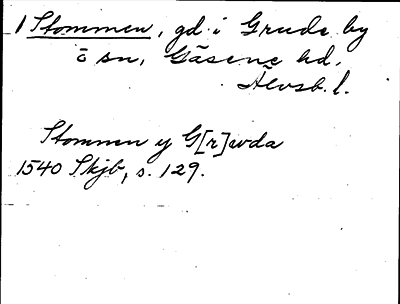 1 Stommen, gd i Grude by
o sn, Gäsene hd,
Älvsb. l.
Stommen y G[r]wda
1540 Skjb, s. 129.